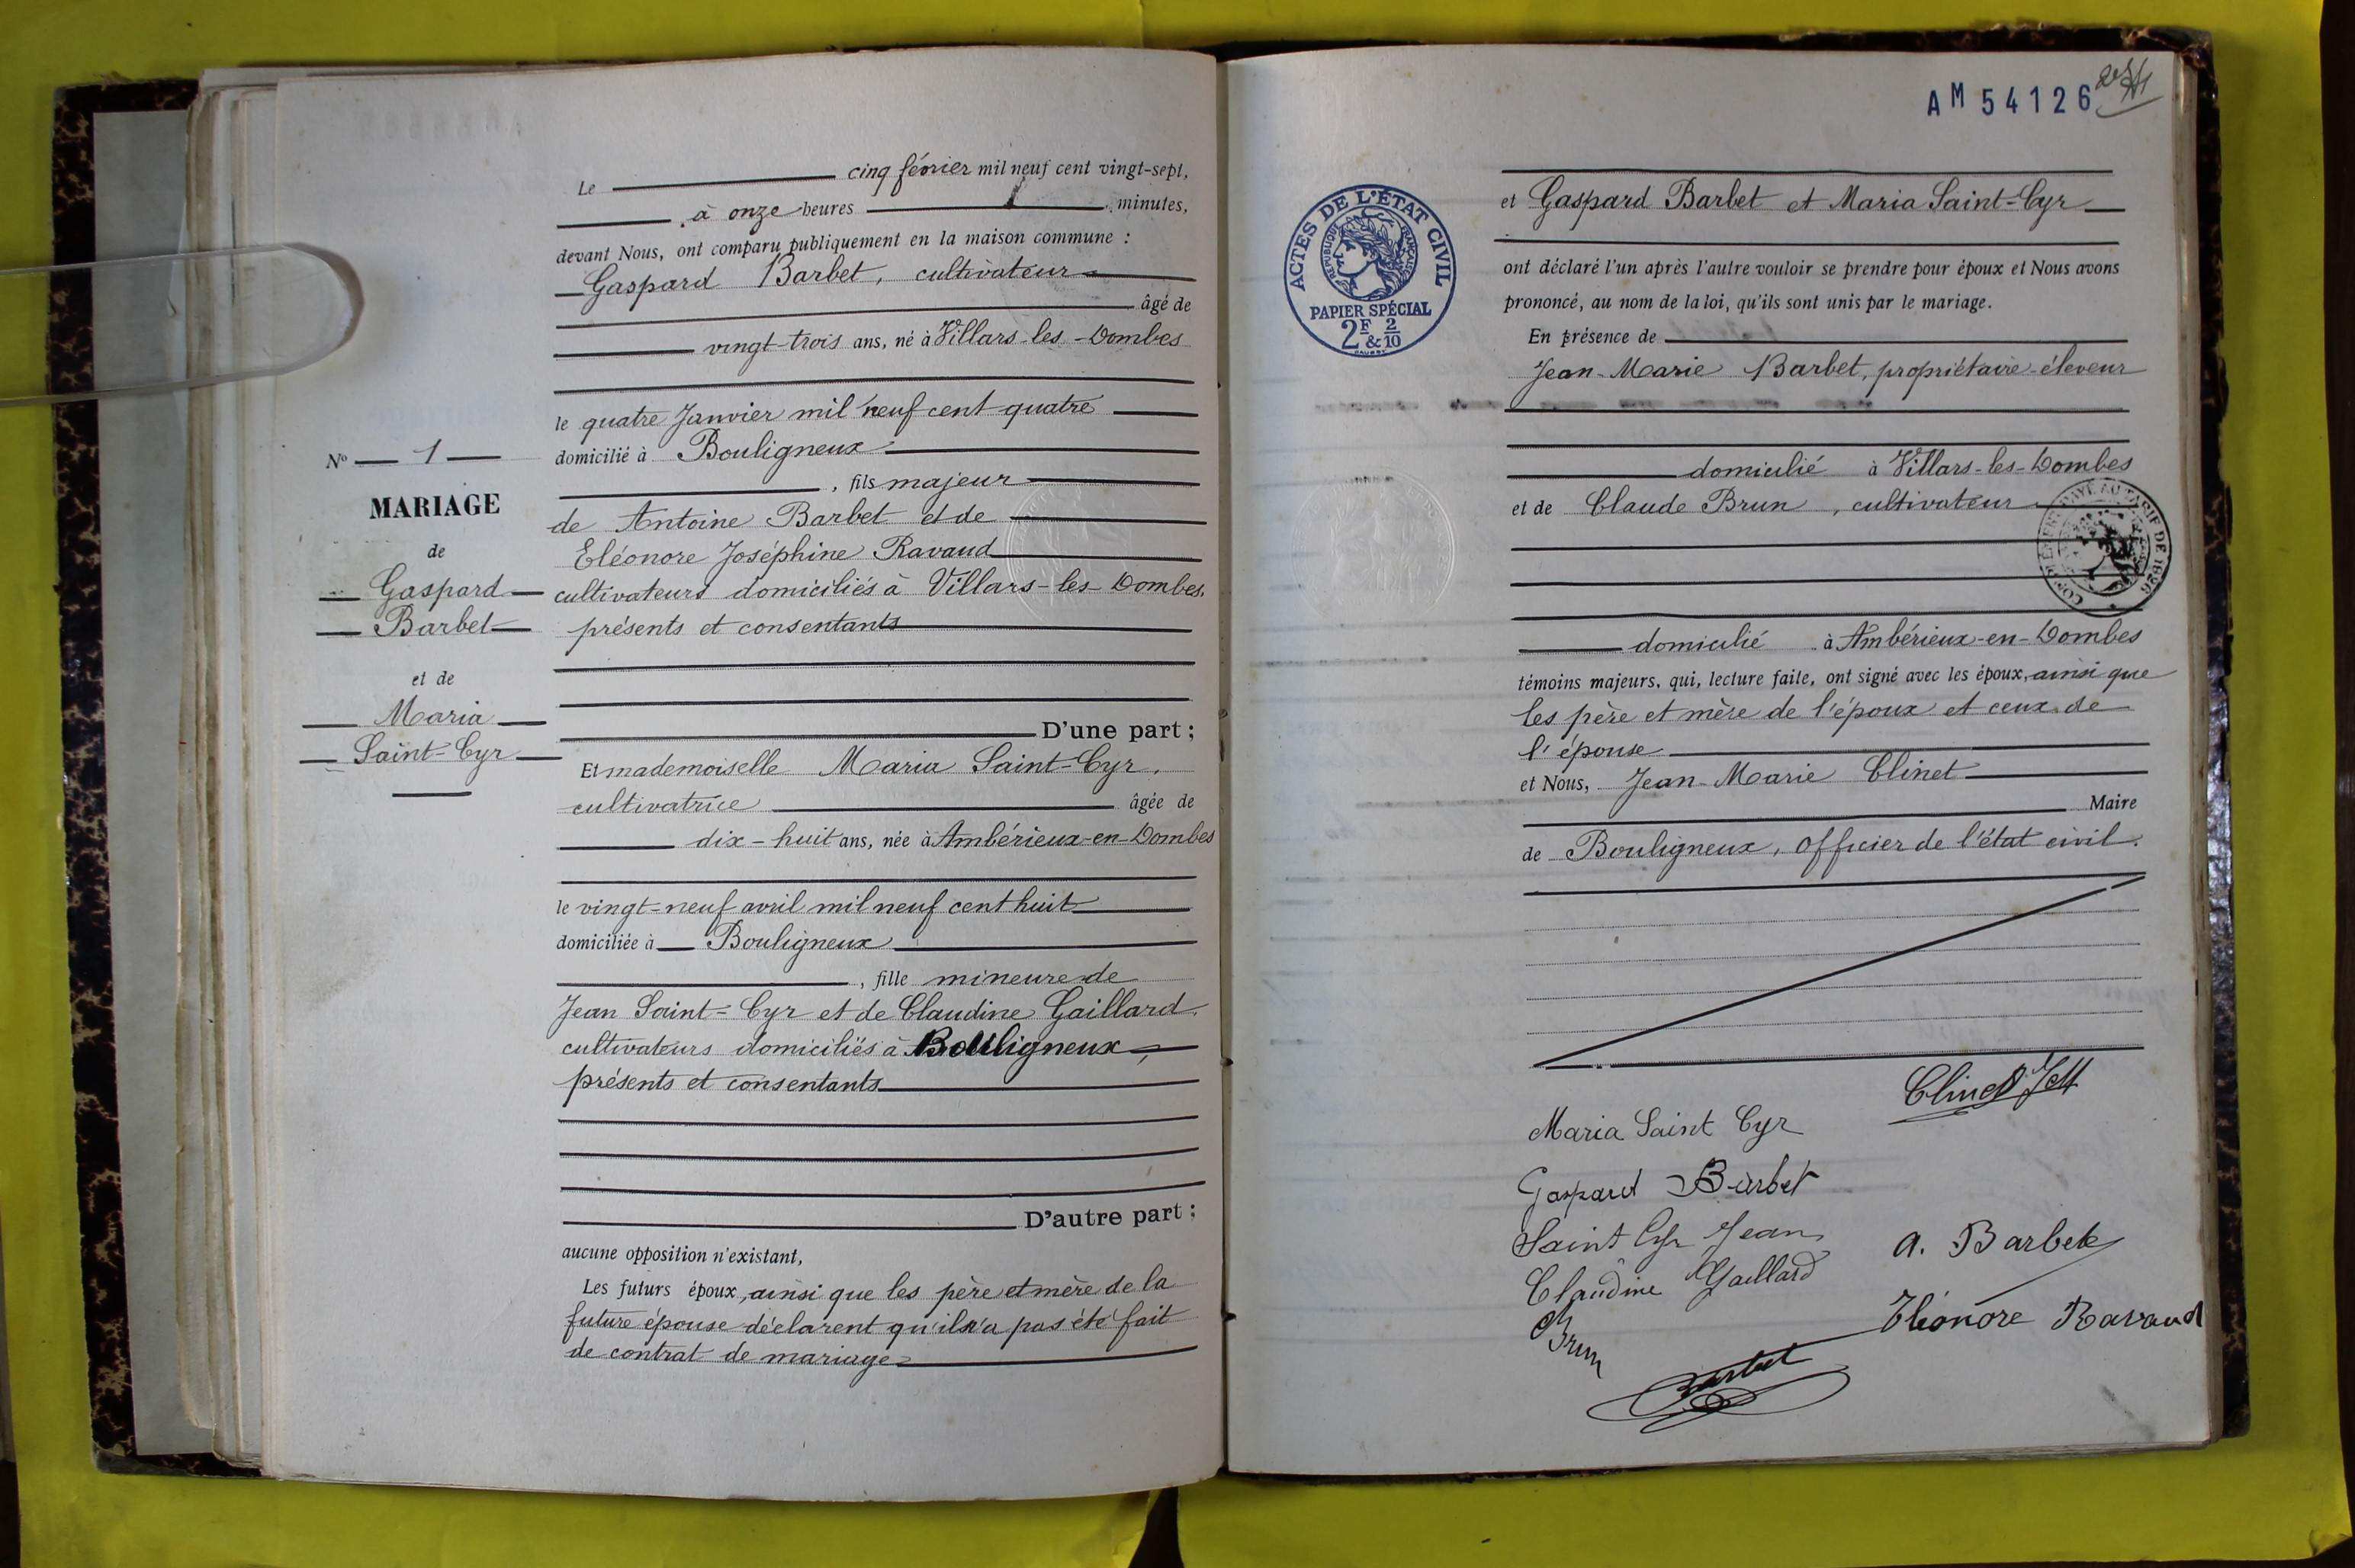 Le cinq février mil neuf cent vingt-sept,
à onze heures minutes,
devant Nous, ont comparu publiquement en la maison commune :
Gaspard Barbet, cultivateur
âgé de
vingt-trois ans, né à Villars-les-Dombes
le quatre Janvier mil neuf cent quatre
domicilié à Bouligneux
, fils majeur
de Antoine Barbet et de
Eléonore Joséphine Ravaud
cultivateurs domiciliés à Villars-les-Dombes.
présents et consentants
D'une part ;
Et mademoiselle Maria Saint-Cyr,
cultivatrice âgée de
dix-huit ans, née à Ambérieux-en-Dombes
le vingt-neuf avril mil neuf cent huit
domiciliée à Bouligneux
, fille mineure de
Jean Saint-Cyr et de Claudine Gaillard.
cultivateurs domiciliés à Bouligneux,
présents et consentants
D'autre part ;
aucune opposition n'existant,
Les futurs époux, ainsi que les père et mère de la
future épouse déclarent qu'il n'a pas été fait
de contrat de mariage
No 1
MARIAGE
de
Gaspard
Barbet
et de
Maria
Saint-Cyr
AM 54126
ACTES DE L'ÉTAT CIVIL
RÉPUBLIQUE FRANÇAISE
PAPIER SPÉCIAL
2F & 2/10
et Gaspard Barbet et Maria Saint-Cyr
ont déclaré l'un après l'autre vouloir se prendre pour époux et Nous avons
prononcé, au nom de la loi, qu'ils sont unis par le mariage.
En présence de
Jean-Marie Barbet, propriétaire-éleveur
domicilié à Villars-les-Dombes
et de Claude Brun, cultivateur
TARIF DE 1926
domicilié à Ambérieux-en-Dombes
témoins majeurs, qui, lecture faite, ont signé avec les époux, ainsi que
les père et mère de l'époux et ceux de
l'épouse
et Nous, Jean-Marie Clinet
Maire
de Bouligneux, officier de l'état civil.
Clinet JM
Maria Saint Cyr
Gaspard Barbet
Saint Cyr Jean
A. Barbet
Claudine Gaillard
Eléonore Ravaud
Brun
Barbet